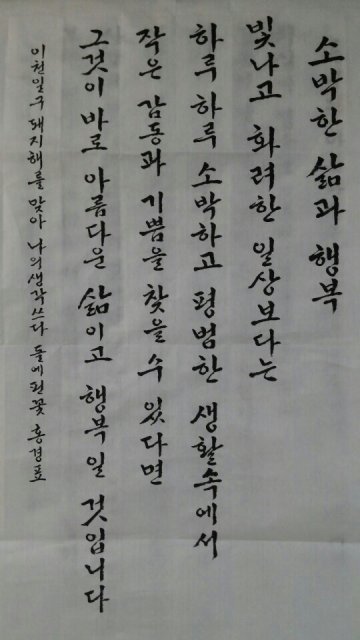 소박한 삶과 행복
빛나고 화려한 일상보다는
하루 하루 소박하고 평범한 생활속에서
작은 감동과 기쁨을 찾을 수 있다면
그것이 바로 아름다운 삶이고 행복일 것입니다
이천일구 돼지해를 맞아 나의생각쓰다 들에핀꽃 홍경표